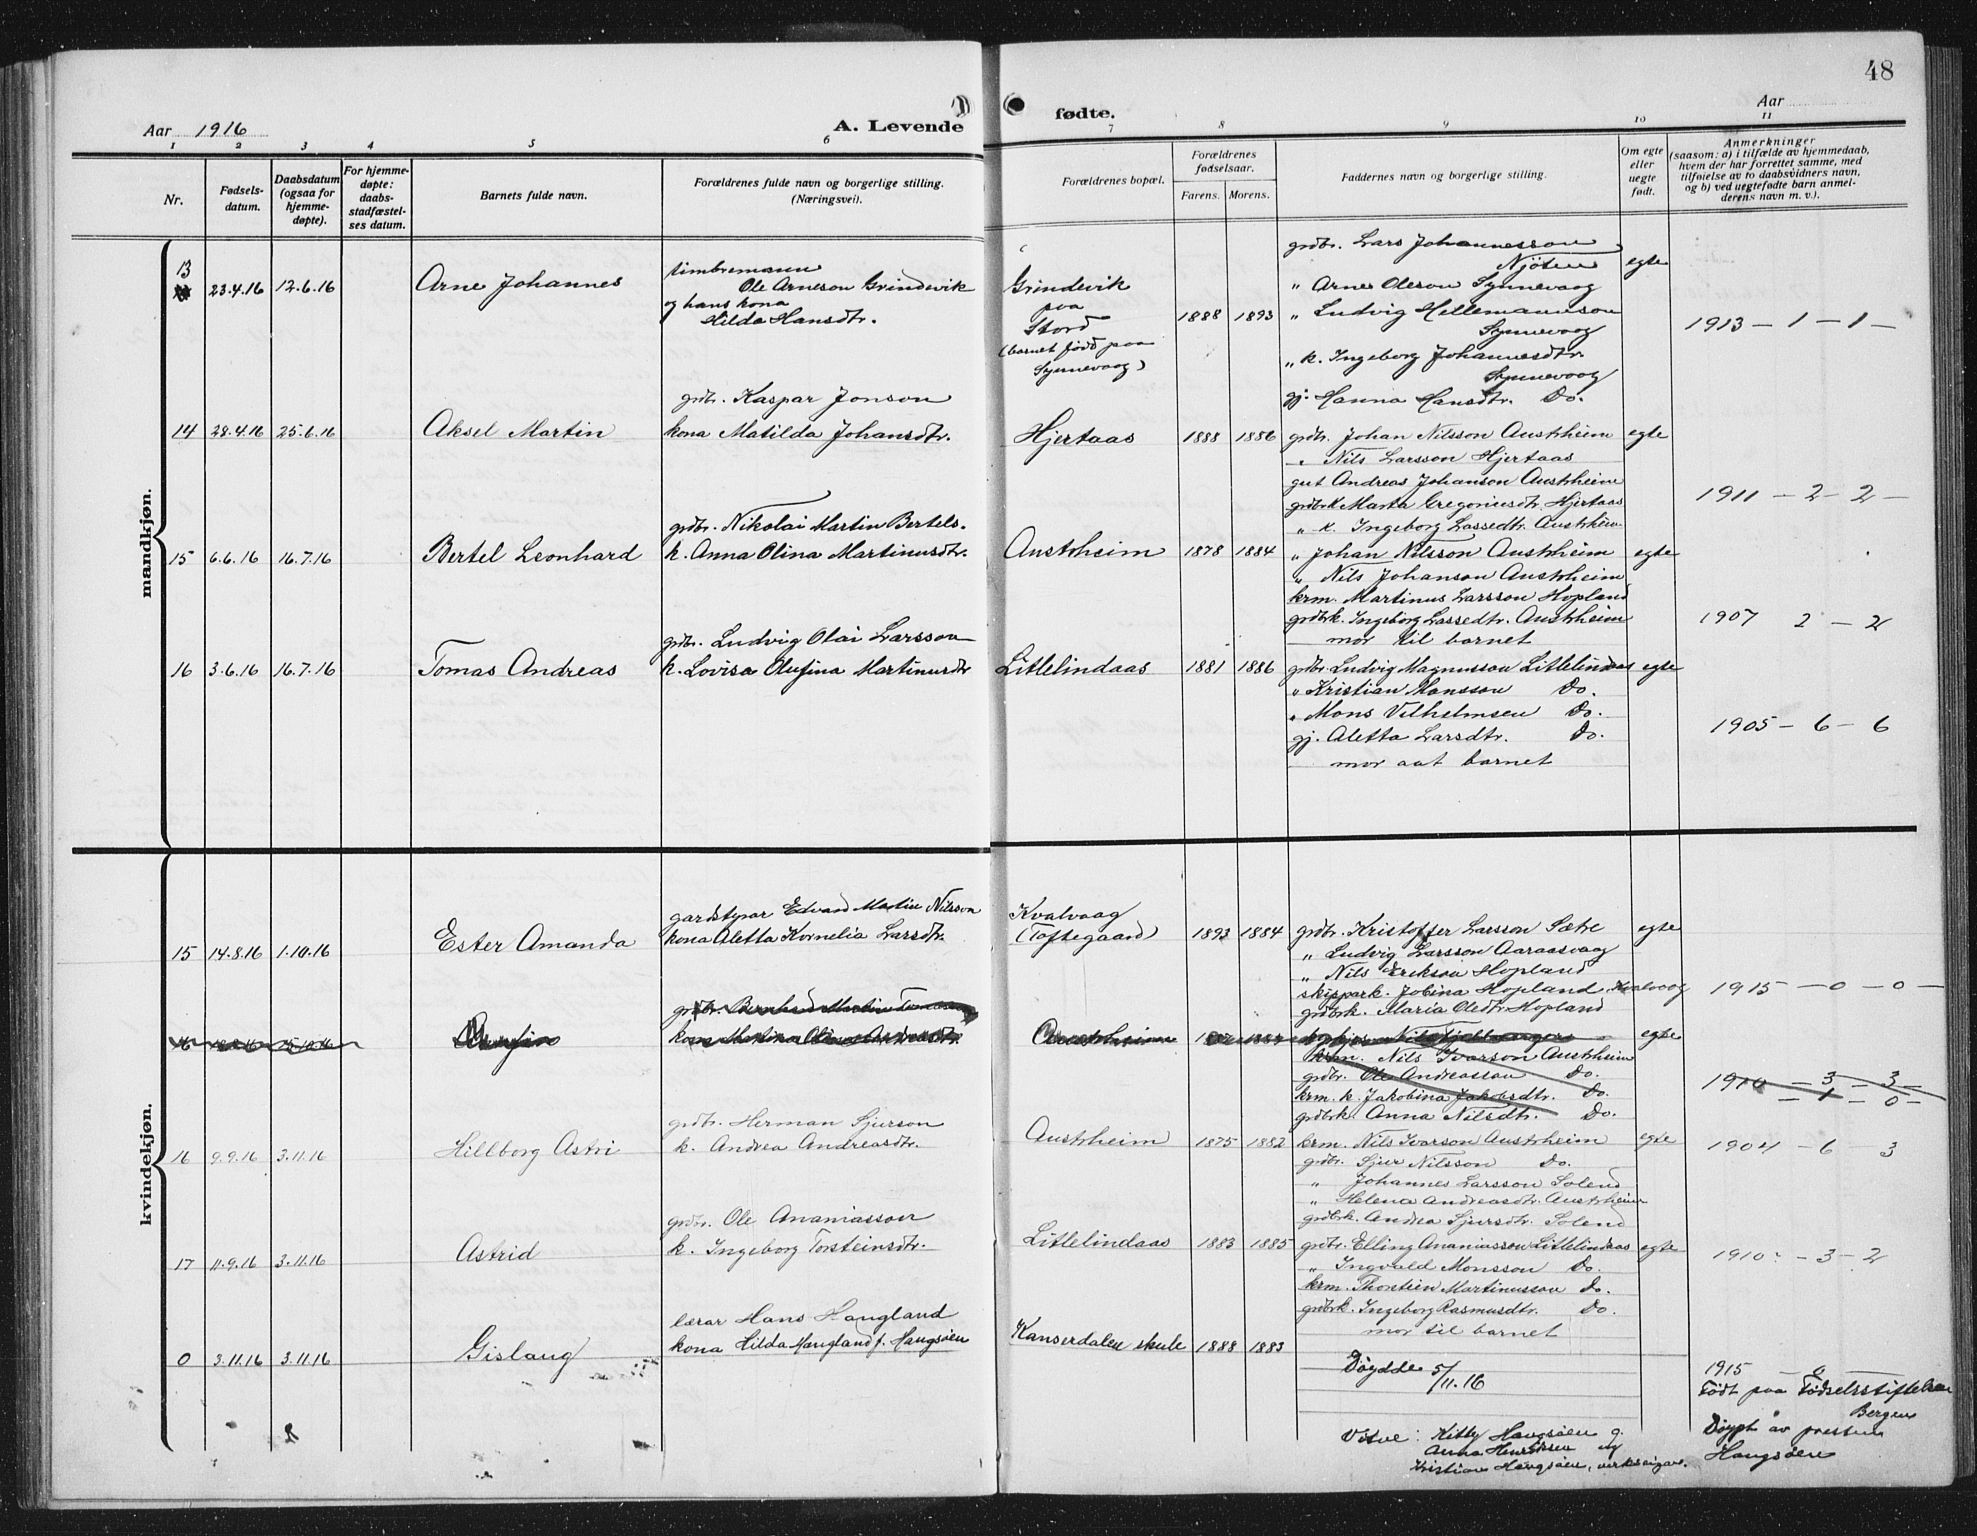 48
Aar 1916
A. Levende
fødte.
Aar
1 2 3 4 5 6 7 8 9 10 11
Nr.
Fødsels-
datum.
Daabsdatum
(ogsaa for
hjemme-
døpte).
For hjemme-
døpte:
daabs-
stadfæstel-
ses datum.
Barnets fulde navn.
Forældrenes fulde navn og borgerlige stilling.
(Næringsvei).
Forældrenes bopæl.
Forældrenes
fødselsaar.
Farens. Morens.
Faddernes navn og borgerlige stilling.
Om egte
eller
uegte
født.
Anmerkninger
(saasom: a) i tilfælde av hjemmedaab,
hvem der har forrettet samme, med
tilføielse av to daabsvidners navn,
og b) ved uegtefødte barn anmel-
derens navn m. v.).
mandkjøn.
13 23.4.16 12.6.16 Arne Johannes
timbremann
Ole Arneson Grindevik
og hans kona
Hilda Hansdtr.
Grindevik
paa
Stord
(barnet født paa
Synnevaag)
1888 1893
grdbr. Lars Johannesson
Njøten
" Arne Oleson Synnevaag
" Ludvig Hillemannson
Synnevaag
" k. Ingeborg Johannesdtr.
Synnevaag
gj. Hanna Hansdtr. Do.
egte
1913 – 1 – 1 –
14 28.4.16 25.6.16 Aksel Martin
grdbr. Kaspar Jonson
kona Matilda Johansdtr.
Hjertaas 1888 1886
grdbr. Johan Nilsson Austrheim
" Nils Larsson Hjertaas
gut Andreas Johanson Austrheim
grdbrk. Marta Gregoriusdtr. Hjertaas
" k. Ingeborg Lassedtr. Austrheim
egte
1911 – 2 – 2 –
15 6.6.16 16.7.16 Bertel Leonhard
grdbr. Nikolai Martin Bertels.
k. Anna Olina Martinusdtr.
Austrheim 1878 1884
" Johan Nilsson Austrheim
" Nils Johanson Austrheim
krm. Martinus Larsson Hopland
grdbrk. Ingeborg Lassedtr. Austrheim
mor til barnet
egte
1907 2 – 2
16 3.6.16 16.7.16 Tomas Andreas
grdbr. Ludvig Olai Larsson
k. Lovisa Olufina Martinusdtr
Litlelindaas 1881 1886
grdbr. Ludvig Magnusson Litlelindaas
" Kristian Monsson Do.
" Mons Vilhelmsen Do.
gj. Aletta Larsdtr. Do.
mor aat barnet
egte
1905 – 6 – 6
kvindekjøn.
15 14.8.16 1.10.16 Ester Amanda
gardstyrar Edvard Martin Nilsson
kona Aletta Kornelia Larsdtr.
Kvalvaag
(Toftegaard)
1893 1884
grdbr. Kristoffer Larsson Sætre
" Ludvig Larsson Aaraasvaag
" Nils Erikson Hopland
skippark. Jobina Hopland Kvalvaag
grdbrk. Maria Oledtr. Hopland
egte
1915 – 0 – 0 –
krm. Nils Ivarson Austrheim
grdbr. Ole Andreasson Do.
krm. k. Jakobina Jakobsdtr. Do.
grdbrk. Anna Nilsdtr. Do.
egte
1910 – 3 – 3 –
– 1 – 0 –
16 9.9.16 3.11.16 Hillborg Astri
grdbr. Herman Sjurson
k. Andrea Andreasdtr.
Austrheim 1875 1882
krm. Nils Ivarson Austrheim
grdbr. Sjur Nilsson Do.
" Johannes Larsson Solend
" Helena Andreasdtr. Austrheim
grdbrk. Andrea Sjursdtr. Solend
egte
1904 – 6 3
17 11.9.16 3.11.16 Astrid
grdbr. Ole Ananiasson
k. Ingeborg Torsteinsdtr.
Litlelindaas 1883 1885
grdbr. Elling Ananiasson Litlelindaas
" Ingvald Monsson Do.
krm. Thorstein Martinusson Do.
grdbrk. Ingeborg Rasmusdtr. Do.
mor til barnet
egte
1910 – 3 – 2
0 3.11.16 3.11.16 Gislaug
lærar Hans Haugland
kona Hilda Haugland f. Haugsøen
Kanserdalen skule 1888 1883
Døydde 5/11.16
1915 0
Født paa Fødselsstiftelsen
Bergen
Døypt av presten
Haugsøen
Vitne: Kitty Haugsøen o.
Anna Henriksen og
Kristian Haugsøen, verkseigar.